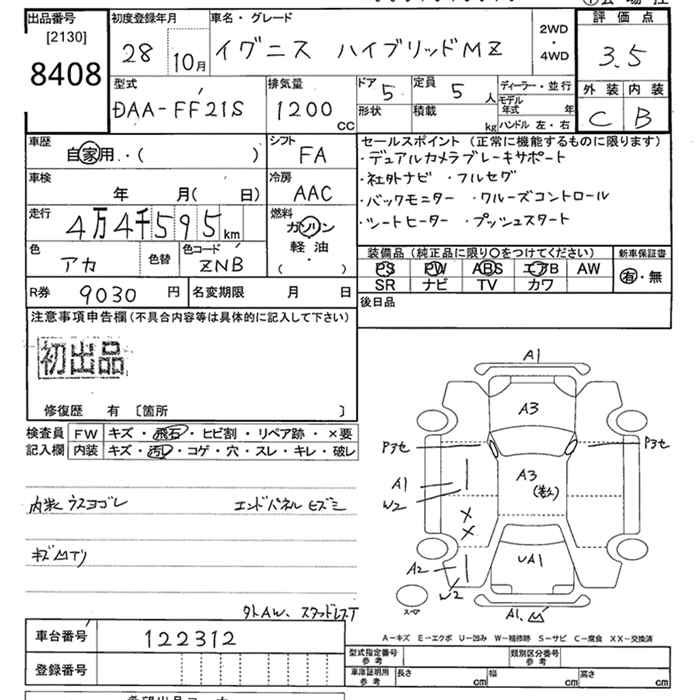 出品番号
[2130]
8408
初度登録年月
28 10月
車名・グレード
イグニス ハイブリッドMZ
2WD
・
4WD
評価点
3.5
外装 内装
C B
型式
DAA-FF21S
排気量
1200 CC
ドア 5
形状
定員 5 人
積載 kg
ディーラー・並行
モデル年式 年
ハンドル 左・右
車歴
自家用・( )
シフト
FA
車検
年 月( 日)
冷房
AAC
走行
4万4千595km
燃料
ガソリン
軽油
( ・ )
色
アカ
色替
色コード
ZNB
R券 9030 円
名変期限 月 日
セールスポイント (正常に機能するものに限ります)
・デュアルカメラブレーキサポート
・社外ナビ ・フルセグ
・バックモニター ・クルーズコントロール
・シートヒーター ・プッシュスタート
装備品 (純正品に限り〇をつけてください)
PS PW ABS エアB AW
SR ナビ TV カワ
新車保証書
有・無
後日品
注意事項申告欄(不具合内容等は具体的に記入して下さい)
初出品
修復歴 有 〔箇所 〕
検査員記入欄
FW キズ・飛石・ヒビ割・リペア跡・×要
内装 キズ・汚レ・コゲ・穴・スレ・キレ・破レ
内装ウスヨゴレ エンドパネルヒズミ
外AW、スタッドレスT
A1
A3
P3セ P3セ
A3
A1
W2
X
X
A2
W2
UA1
スペア
A1、
A-キズ E-エクボ U-凹み W-補修跡 S-サビ C-腐食 XX-交換済
車台番号 122312
登録番号
型式指定番号 参考
類別区分番号 参考
車庫証明用 参考
長さ cm 幅 cm 高さ cm